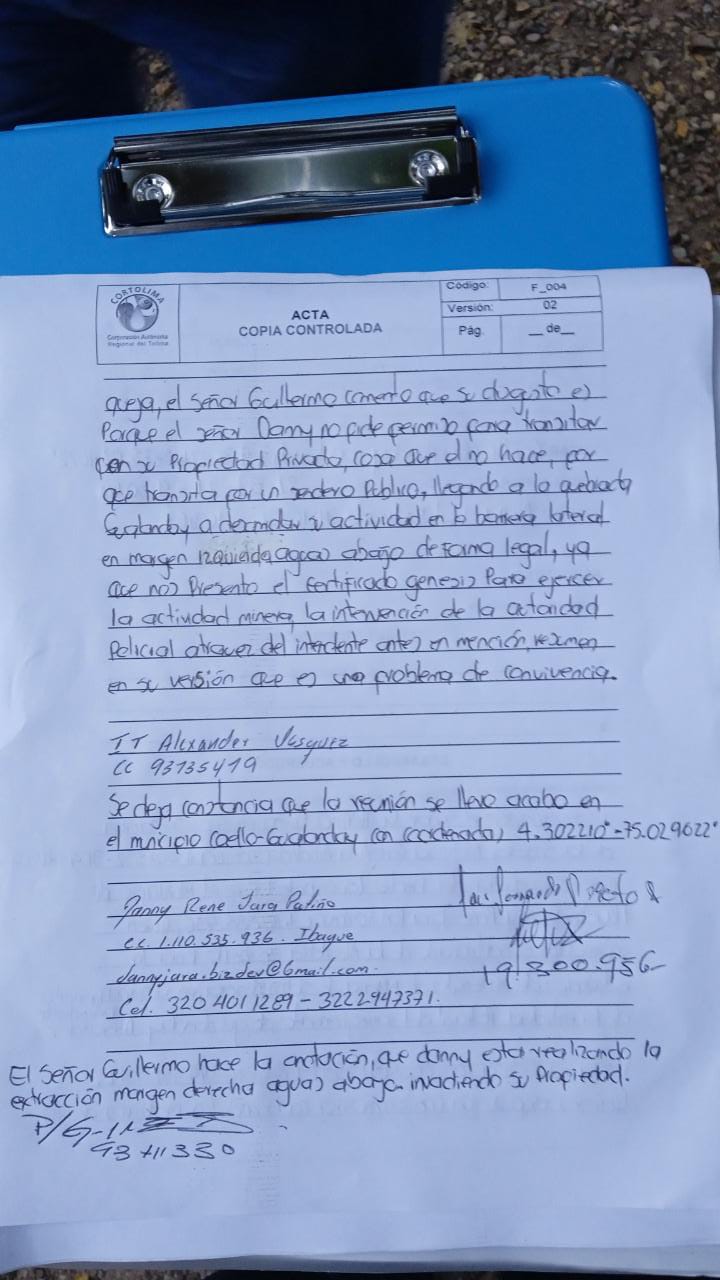 CORTOLIMA
Corporación Autónoma
Regional del Tolima
ACTA
COPIA CONTROLADA
Código: F_004
Versión: 02
Pág. __ de__
queja, el señor Guillermo comento que su disgusto es
Porque el señor Danny no pide permiso para transitar
por su Propiedad Privada, cosa que el no hace, por
que transita por un sendero Publico, llegando a la quebrada
Gualanday a desarrollar su actividad en la barrera lateral
en margen izquierda aguas abajo de forma legal, ya
que nos Presento el certificado genesis Para ejercer
la actividad minera, la intervención de la autoridad
Policial atravez del intendente antes en mención, resumen
en su versión que es un problema de convivencia.
IT Alexander Vasquez
CC 93135419
Se deja constancia que la reunión se llevo acabo en
el municipio Coello-Gualanday con coordenadas 4.302210° -75.029622°
Danny Rene Jara Patiño
cc. 1.110.535.936. Ibague
dannyjara.bizdev@Gmail.com.
19.300.956
Cel. 320 4011289 - 3222947371.
El señor Guillermo hace la anotación, que danny esta realizando la
extracción margen derecha aguas abajo invadiendo su Propiedad.